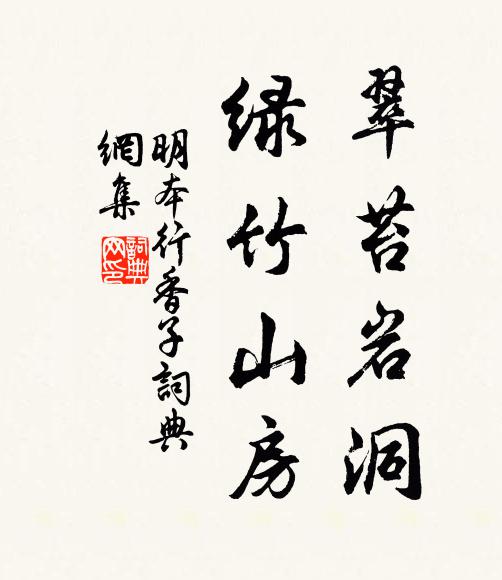 翠苔岩洞
绿竹山房
明本行香子詞典
網集
詞典
网印